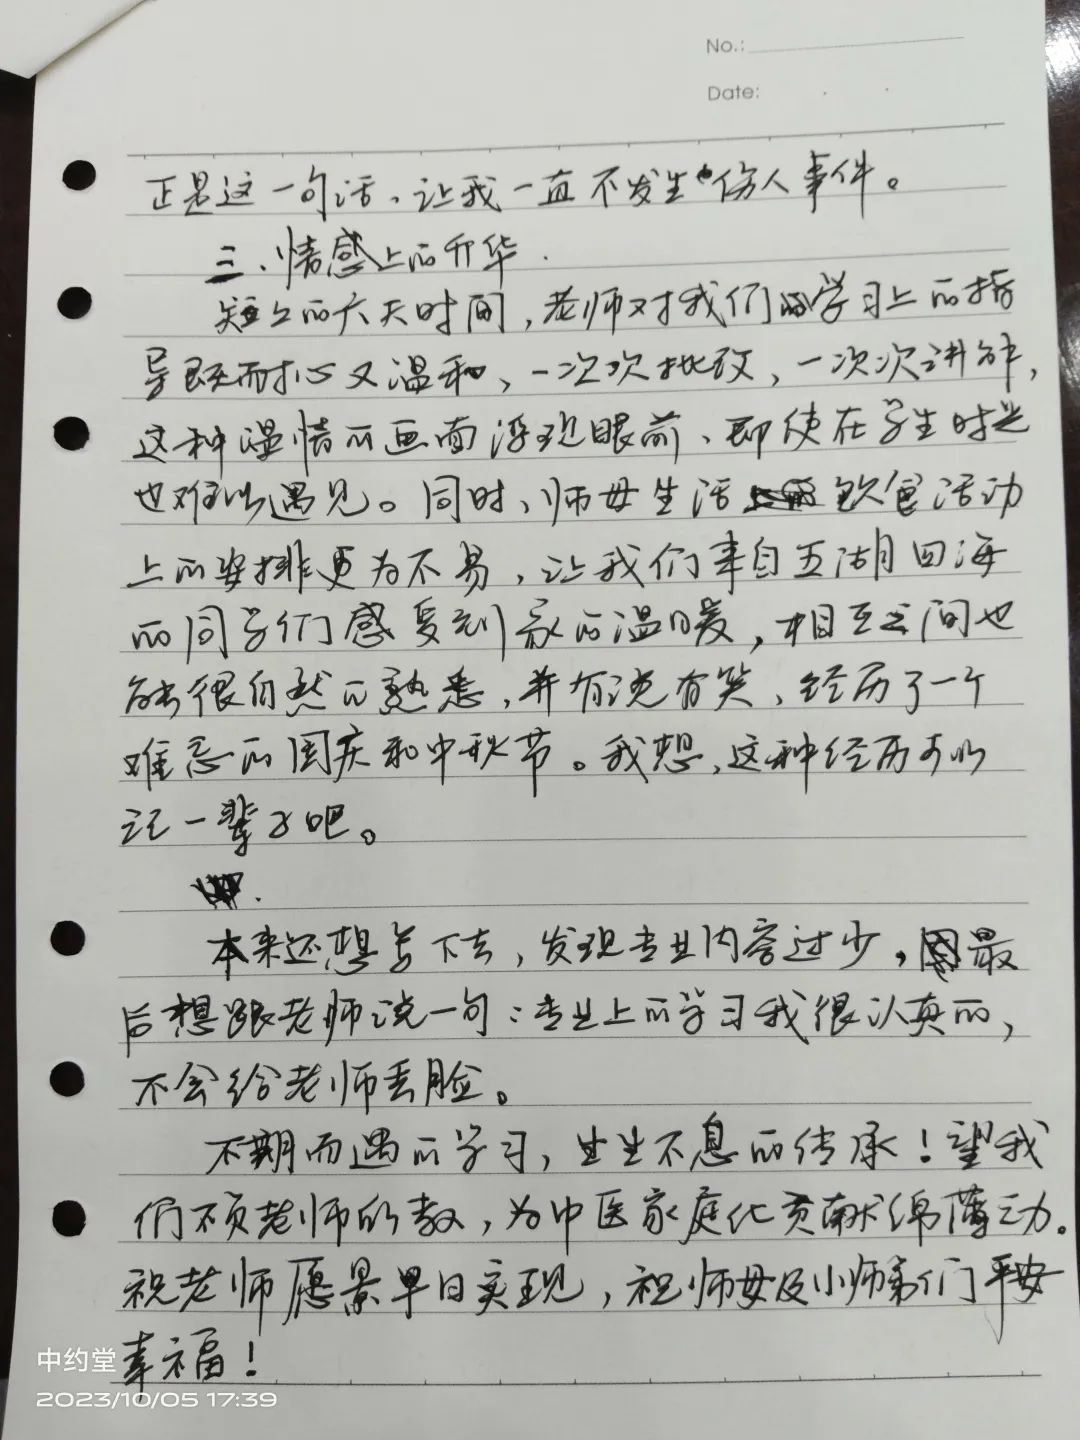 No.:
Date:
正是这一句话，让我一直不发生伤人事件。
三、情感上的升华.
短短的六天时间，老师对我们的学习上的指
导既耐心又温和，一次次批改，一次次讲解，
这种温情的画面浮现眼前，即使在学生时光
也难以遇见。同时，师母生活饮食活动
上的安排更为不易，让我们来自五湖四海
的同学们感受到家的温暖，相互之间也
能很自然的熟悉，并有说有笑，经历了一个
难忘的国庆和中秋节。我想，这种经历可以
记一辈子吧。
本来还想写下去，发现专业内容过少，最
后想跟老师说一句：专业上的学习我很认真的，
不会给老师丢脸。
不期而遇的学习，生生不息的传承！望我
们不负老师的教，为中医家庭化贡献绵薄之力。
祝老师愿景早日实现，祝师母及小师弟们平安
幸福！
中约堂
2023/10/05 17:39